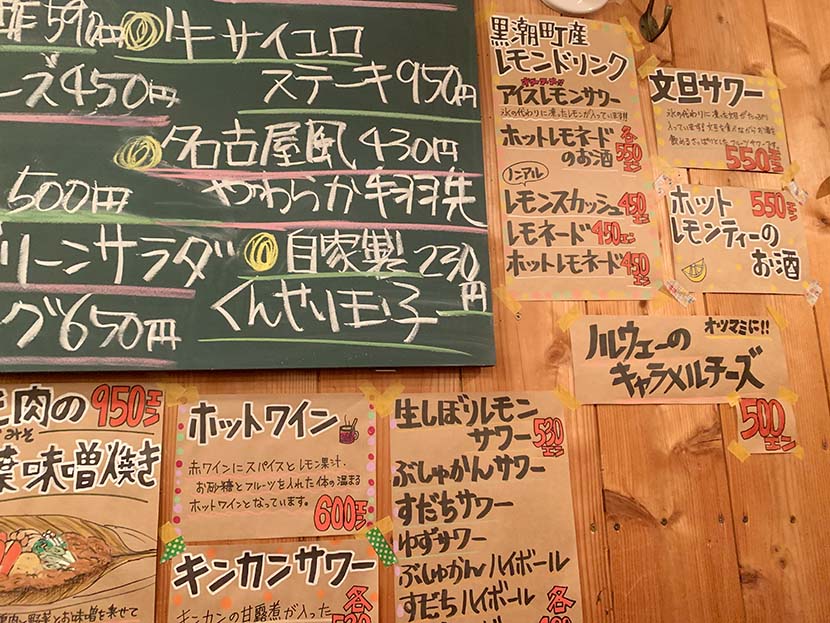 酢590円
牛サイコロ
ステーキ950円
ーズ450円
名古屋風430円
やわらか手羽先
500円
リーンサラダ
自家製230円
くんせい玉子
グ650円
黒潮町産
レモンドリンク
アイスレモンサワー
氷の代わりに凍ったレモンが入っています!!
ホットレモネード
のお酒
各550エン
ノンアル
レモンスカッシュ450エン
レモネード450エン
ホットレモネード450エン
文旦サワー
氷の代わりに凍った文旦がたっぷり
入っています!文旦を食べながらお酒を
飲めるさっぱりとしたフルーツサワーです。
550エン
ホット
レモンティーの
お酒
550エン
ノルウェーの
オツマミに!!
キャラメルチーズ
500エン
肉の950エン
みそ
葉味噌焼き
野菜とお味噌を乗せて
ホットワイン
赤ワインにスパイスとレモン果汁、
お砂糖とフルーツを入れた体の温まる
ホットワインとなっています。
600エン
キンカンサワー
キンカンの甘露煮が入った
各
生しぼりレモン
サワー530エン
ぶしゅかんサワー
すだちサワー
ゆずサワー
ぶしゅかんハイボール
すだちハイボール
各